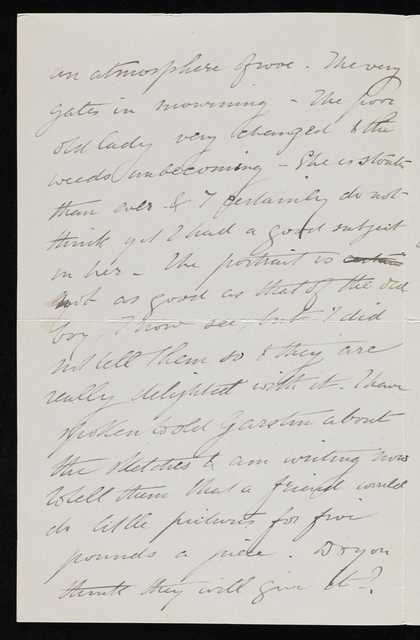 an atmosphere of woe. The very
gates in mourning - The poor
old lady very changed & the
weeds unbecoming - She is stouter
than ever & I certainly do not
think yet I had a good subject
in her - The portrait is
not as good as that of the old
boy, I now see, but I did
not tell them so & they are
really delighted with it. I have
spoken to old Garstin about
the sketches & am writing now
to tell them that a friend would
do little pictures for five
pounds a piece. Do you
think they will give it?